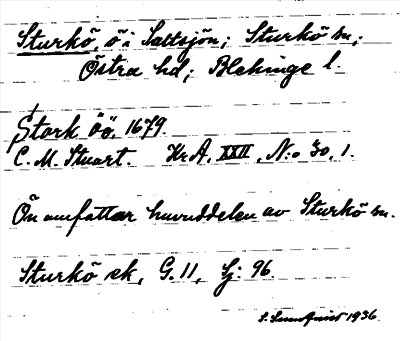 Sturkö, ö i Saltsjön; Sturkö sn;
Östra hd; Blekinge l.
Stork öö, 1679.
C. M. Stuart. Kr A, XXII, N:o 30, 1.
Ön omfattar huvuddelen av Sturkö sn.
Sturkö ek, G. 11, Sj: 96.
S. Sundquist 1936.